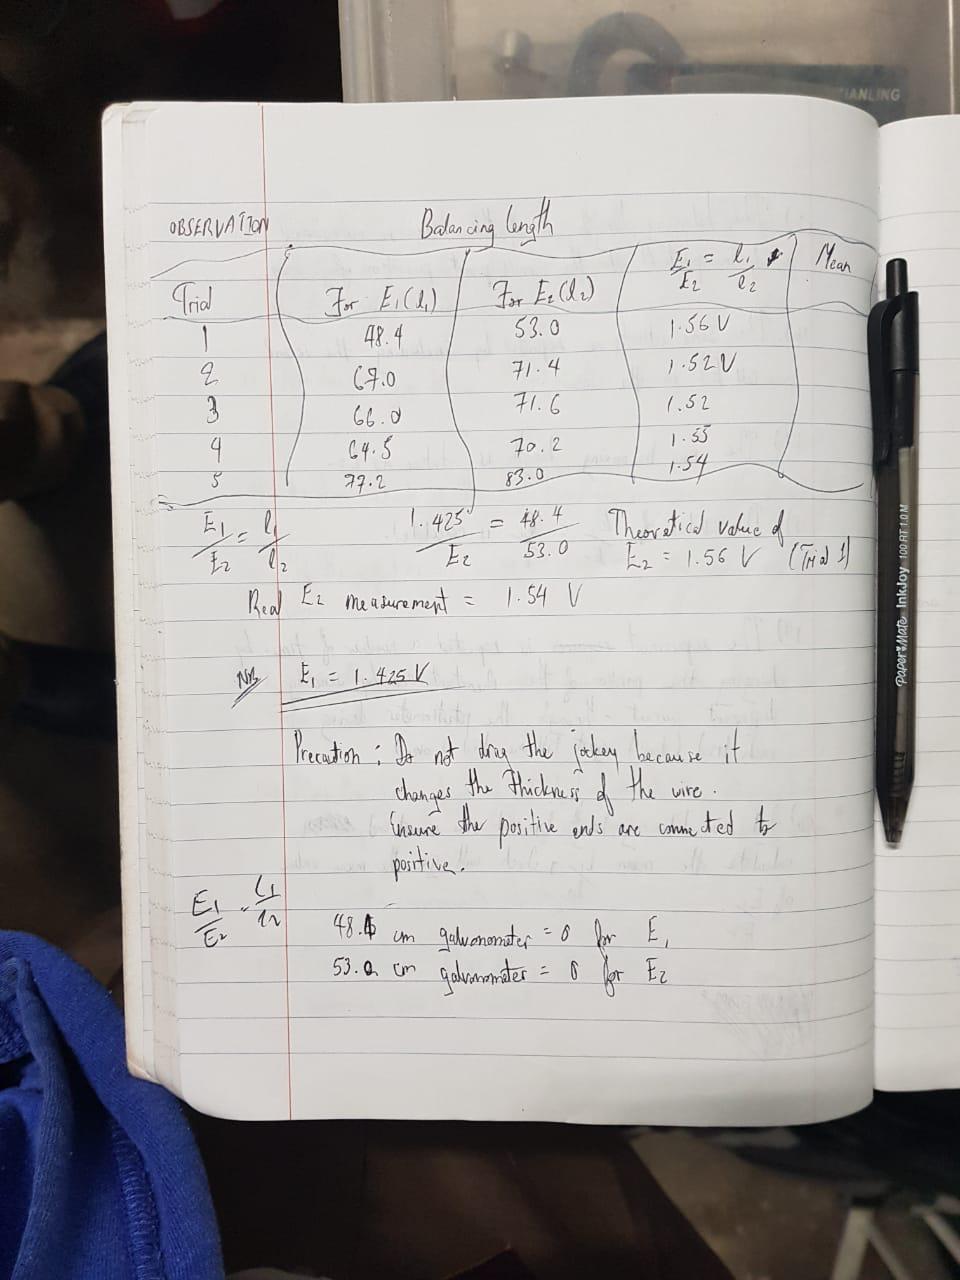 IANLING
OBSERVATION Balancing length
Trial For E₁(l₁) For E₂(l₂) E₁/E₂ = l₁/l₂ Mean
1 48.4 53.0 1.56 V
2 67.0 71.4 1.52 V
3 66.0 71.6 1.52
4 64.5 70.2 1.55
5 77.2 83.0 1.54
E₁/E₂ = l₁/l₂ 1.425/E₂ = 48.4/53.0 Theoretical value of
E₂ = 1.56 V (Trial 1)
Real E₂ measurement = 1.54 V
NB E₁ = 1.425 V
Precaution : Do not drag the jockey because it
changes the thickness of the wire.
Ensure the positive ends are connected to
positive.
E₁/E₂ = l₁/l₂
48.4 cm galvanometer = 0 for E₁
53.0 cm galvanometer = 0 for E₂
Paper Mate InkJoy 100 RT 1.0 M